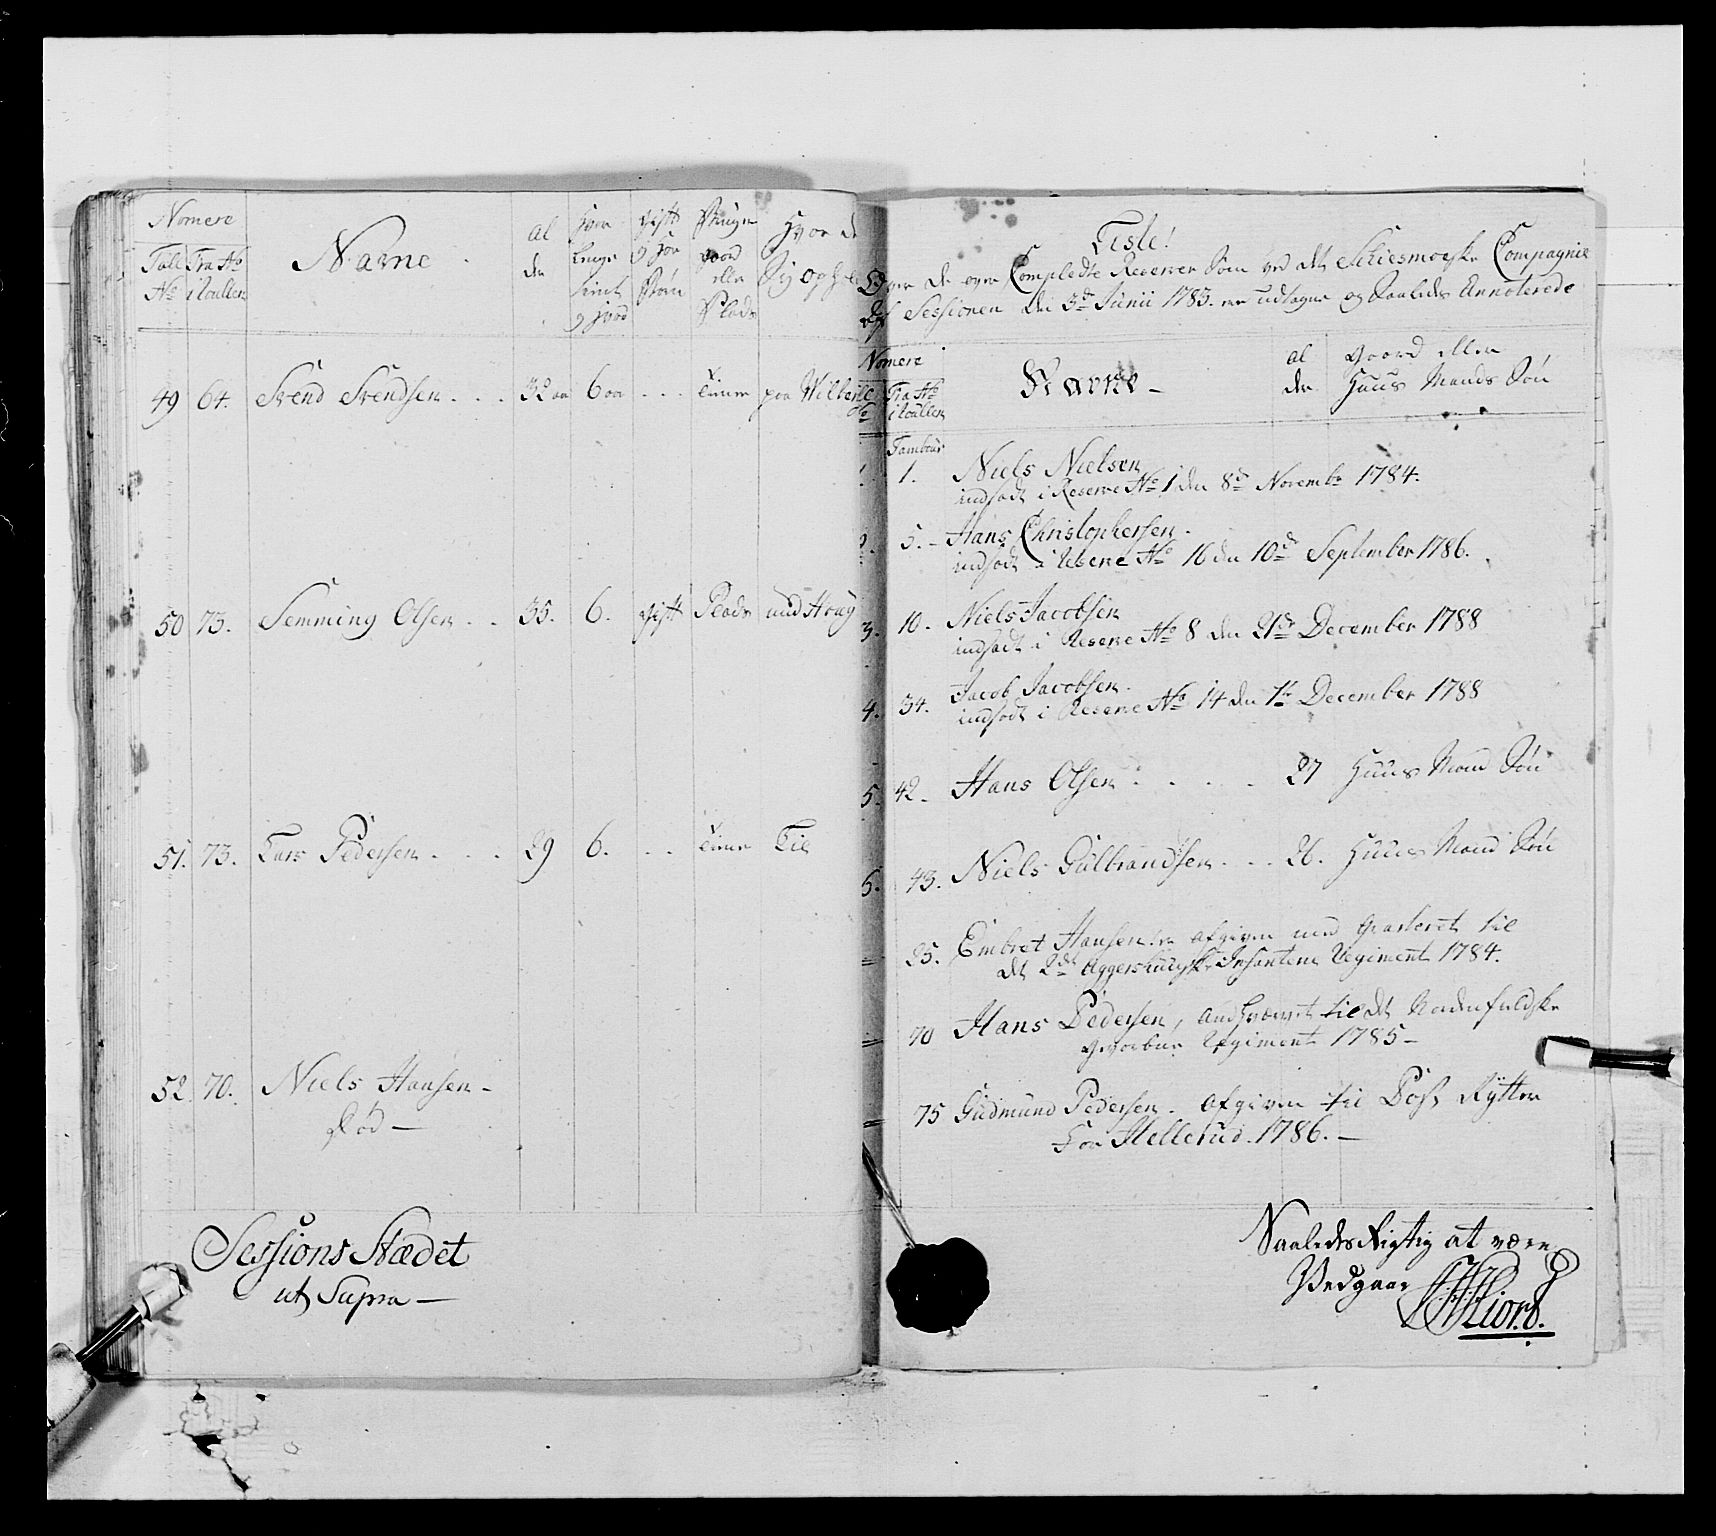 Nomere
Tall No
Fra No i Roullen
Navne
Al der
Hvor lenge tient
Gift
Hvor
49 64. Svend Svendsen . . . 32 aar 6 aar . . . tiener paa
50 73. Semming Olsen . . 35. 6. Gift Plads
51. 73. Lars Pedersen . . . 29 6. . . tiener Til
52. 70. Niels Hansen –
Død —
Sessions Stædet
ut Supra —
Liste!
Over de over Compledte Reserver Som ved det Schiesmoeske Compagnie
Sessionen den 3de Junii 1783. er udtagne og Saaledes Annoterede
Nomere
Fra No
i Roullen
Navne –
Al der
Gaard eller
Huus Mands Søn
Tambour
1. Niels Nielsen
indsadt i Reserve No 1 den 8de Novembr 1784.
5. – Hans Christophersen.
indsadt i Reserve No 16 den 10de September 1786.
3. 10. Niels Jacobsen
indsadt i Reserve No 8 den 21de December 1788
4. 34. Jacob Jacobsen.
indsadt i Reserve No 14 den 1te December 1788
5. 42. Hans Olsen . . . . . 27 Huus Mand Søn
43. Niels Gulbrandsen . . . 26. Huus Mand Søn
25. Embret Hansen er afgiven med Qvarteret til
det 2det Aggershuuske Infanterie Regiment 1784.
70 Hans Pedersen, til det Nordenfieldske
Regiment 1785 –
75 Gudmund Pedersen. Afgiven til Post Rytter
for Hellerud. 1786. —
Saaledes Rigtig at være
Vedgaar Hiort.